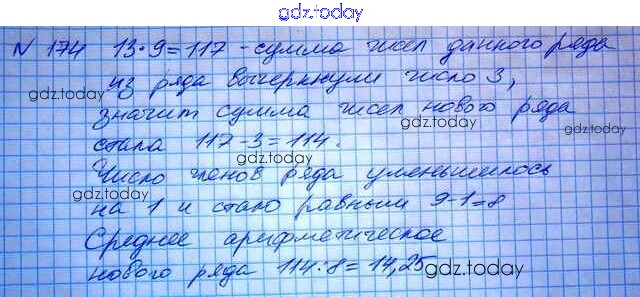 gdz.today
N 174 13·9=117 - сумма чисел данного ряда
из ряда вычеркнули число 3,
gdz.today
значит сумма чисел нового ряда
gdz.today gdz.today
стала 117-3=114.
Число членов ряда уменьшилось
gdz.today
на 1 и стало равным 9-1=8
Среднее арифметическое
нового ряда 114:8=14,25
gdz.today